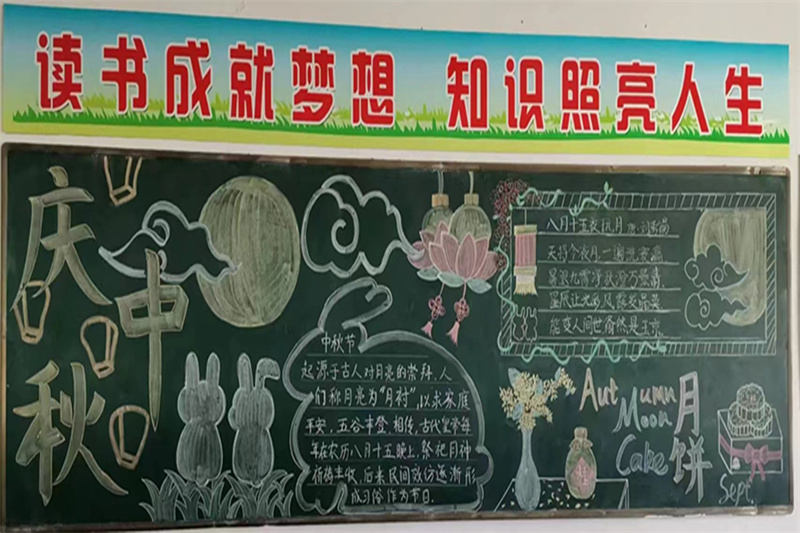 读书成就梦想 知识照亮人生
庆中秋
中秋节
起源于古人对月亮的崇拜.人
们称月亮为“月神”,以求家庭
平安,五谷丰登.相传,古代皇帝每
年在农历八月十五晚上,祭祀月神
祈祷丰收,后来民间效仿逐渐形
成习俗作为节日.
八月十五夜玩月
天将今夜月一遍洗寰瀛
暑退九霄净秋澄万景清
星辰让光彩风露发晶英
能变人间世翛然是玉京
Autumn
Moon
Cake
月饼
Sept.